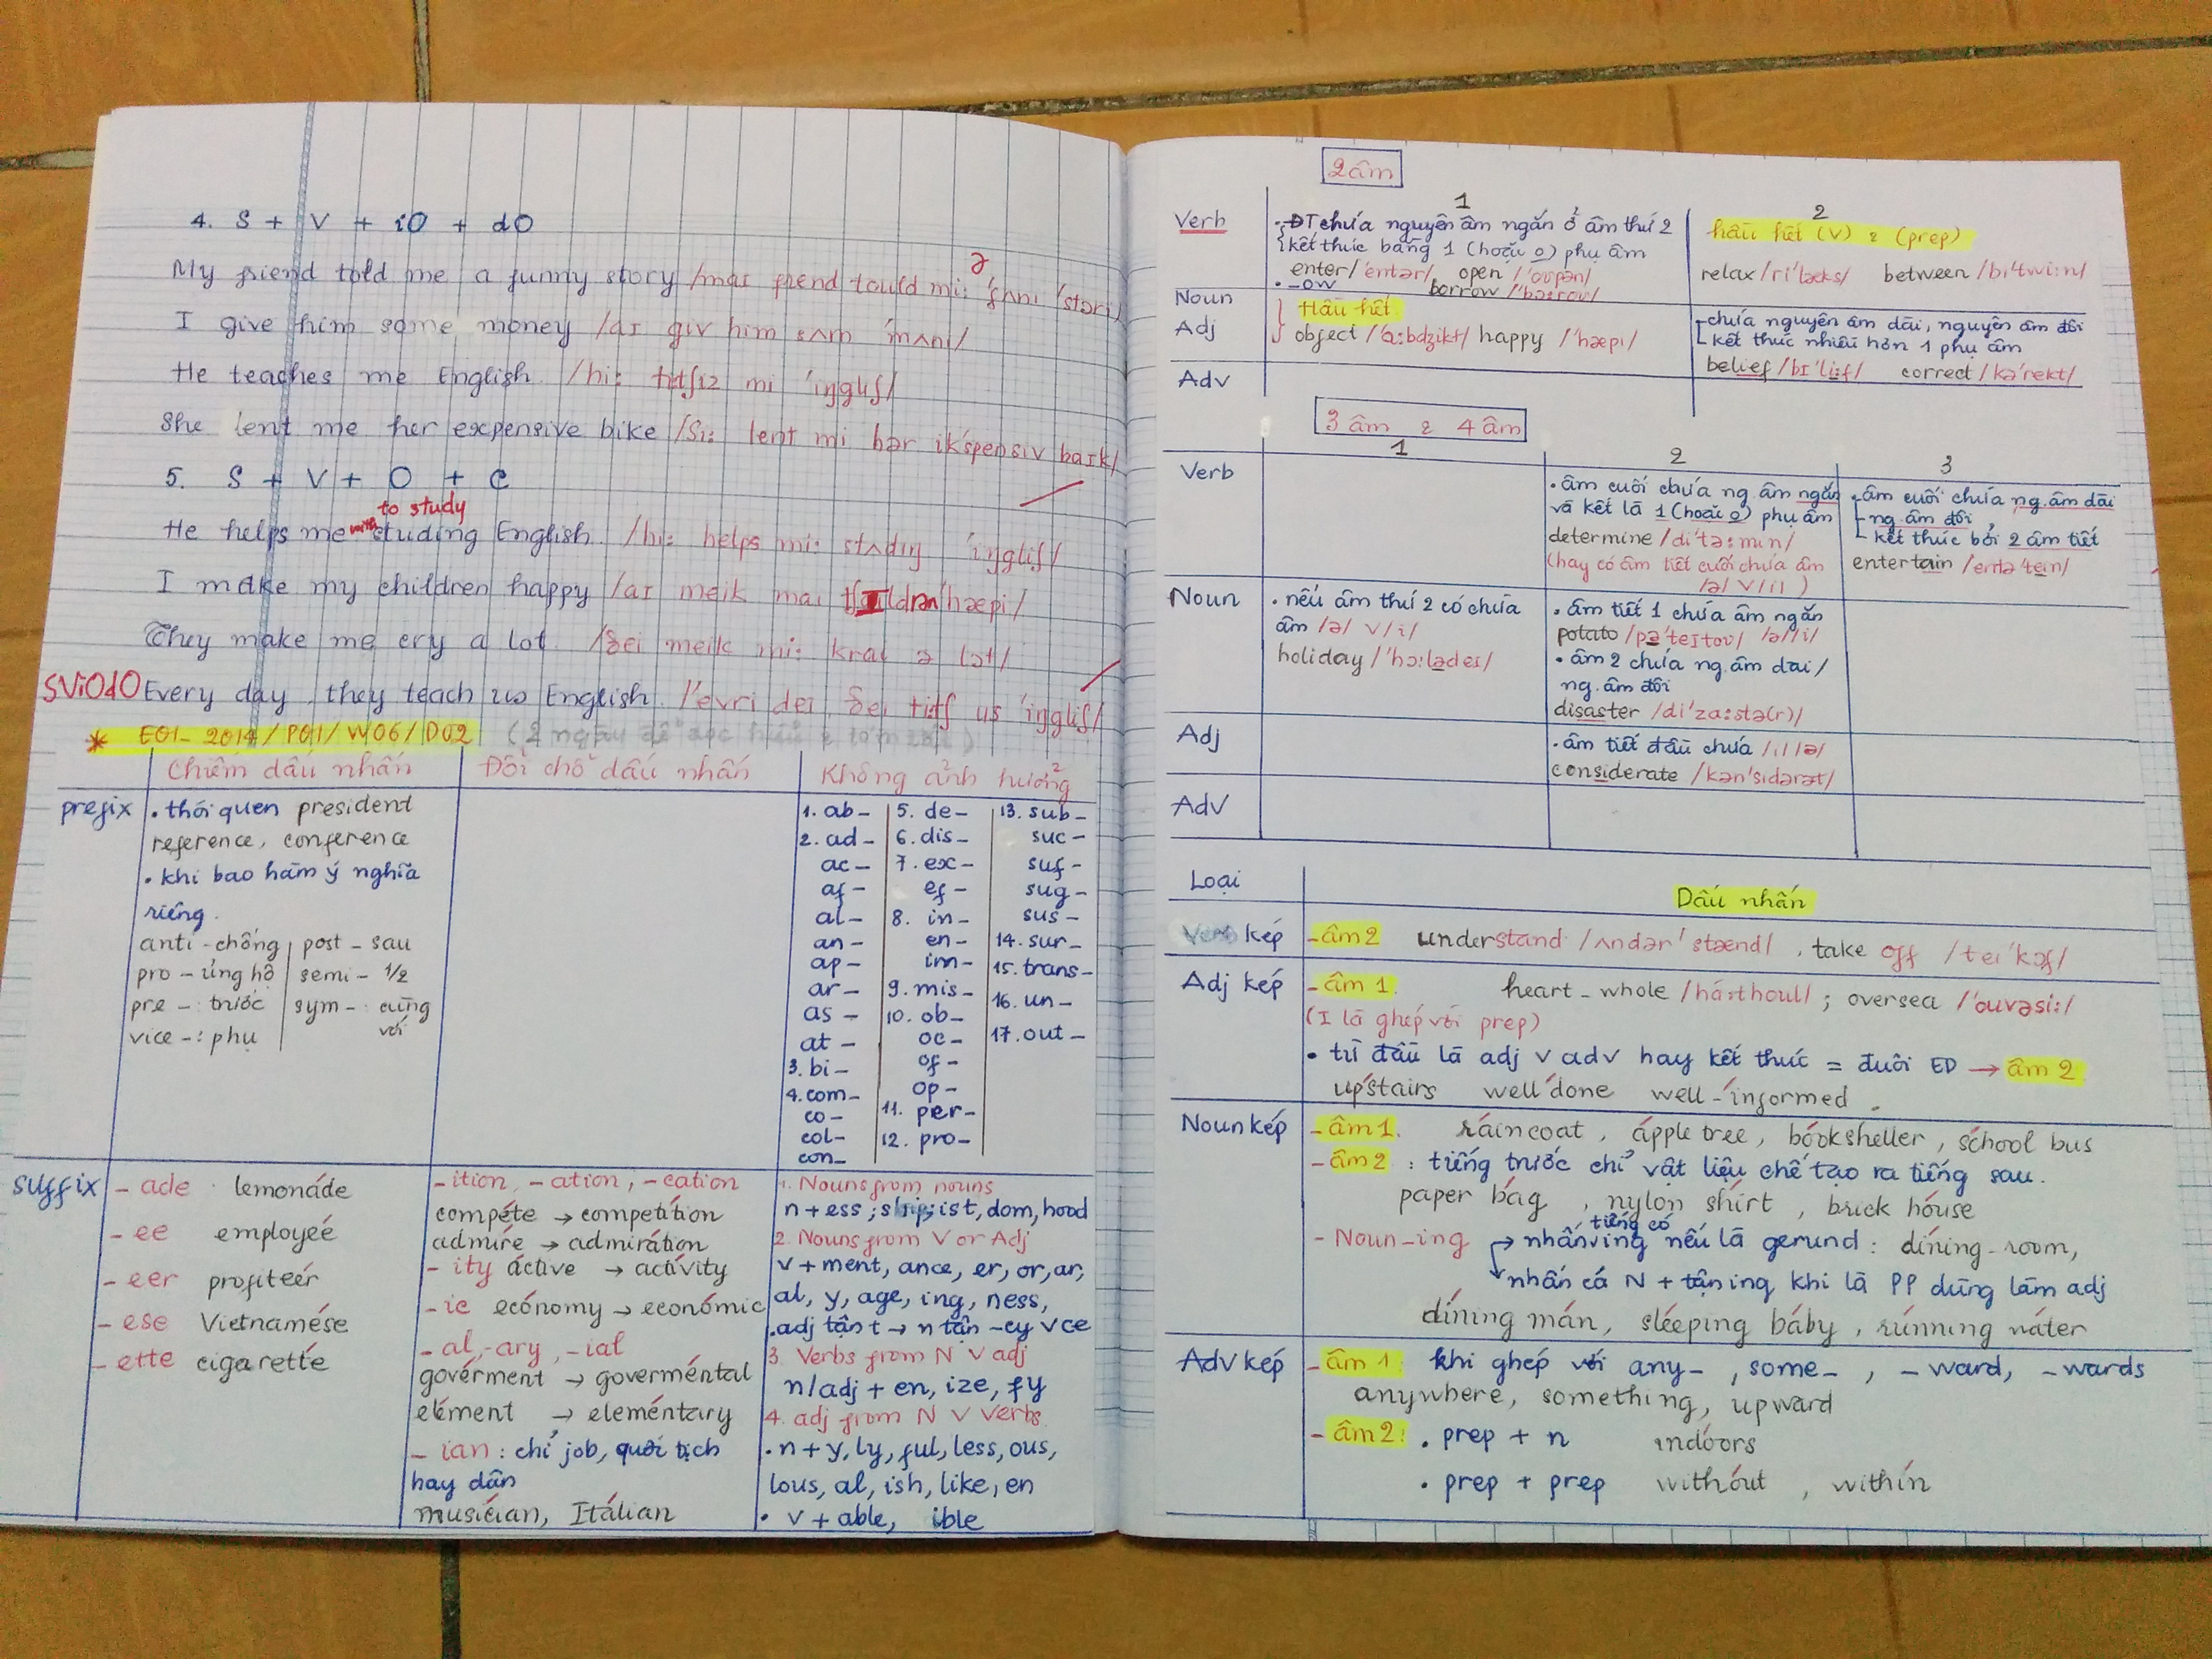 4. S + V + iO + dO
My friend told me a funny story /mai frend tould mi: ə 'fʌni 'stɔri/
I give him some money /aɪ giv him sʌm 'mʌni/
He teaches me English /hi: titʃiz mi 'iŋgliʃ/
She lent me her expensive bike /ʃi: lent mi hər ik'spensiv baɪk/
5. S + V + O + C
to study
He helps me with studing English /hi: helps mi: stʌdiŋ 'iŋgliʃ/
I make my children happy /aɪ meik mai tʃɪldrən 'hæpi/
They make me cry a lot /ðei meik mi: krai ə lɔt/
SViOdO Every day, they teach us English /'evri dei, ðei titʃ us 'iŋgliʃ/
* E01-2014/P01/W06/D02 (2 ngày để đọc hiểu & tóm tắt)
Chiếm dấu nhấn Đổi chỗ dấu nhấn Không ảnh hưởng
prefix • thói quen president
reference, conference
• khi bao hàm ý nghĩa
riêng.
anti-chống post-sau
pro-ủng hộ semi-1/2
pre-: trước sym-: cùng
với
vice-: phụ
1. ab- 5. de- 13. sub-
2. ad- 6. dis- suc-
ac- 7. ex- suf-
af- ef- sug-
al- 8. in- sus-
an- en- 14. sur-
ap- im- 15. trans-
ar- 9. mis- 16. un-
as- 10. ob- 17. out-
at- oc-
3. bi- of-
4. com- op-
co- 11. per-
col- 12. pro-
con-
suffix -ade lemonáde
-ee employeé
-eer profiteér
-ese Vietnamése
-ette cigarétte
-ition, -ation, -cation
compéte → competítion
admíre → admirátion
-ity áctive → actívity
-ic ecónomy → económic
-al, -ary, -ial
góverment → goverméntal
élement → eleméntary
-ian: chỉ job, quốc tịch
hay dân
musícian, Itálian
1. Nouns from nouns
n+ess; ship; ist, dom, hood
2. Nouns from V or Adj
v+ment, ance, er, or, ar,
al, y, age, ing, ness,
.adj tận t → n tận -cy v ce
3. Verbs from N v adj
n/adj + en, ize, fy
4. adj from N v Verbs
• n+y, ly, ful, less, ous,
lous, al, ish, like, en
• v+able, ible
2 âm
1 2
Verb • ĐT chứa nguyên âm ngắn ở âm thứ 2
kết thúc bằng 1 (hoặc 0) phụ âm
enter /'entər/, open /'oʊpən/
• -ow borrow /'bɔ:roʊ/
hầu hết (V) & (prep)
relax /ri'læks/ between /bi'twi:n/
Noun
Adj
Adv
Hầu hết
object /'ɑ:bdʒikt/ happy /'hæpi/
chứa nguyên âm dài, nguyên âm đôi
kết thúc nhiều hơn 1 phụ âm
belief /bɪ'li:f/ correct /kə'rekt/
3 âm & 4 âm
1 2 3
Verb
• âm cuối chứa ng.âm ngắn
và kết là 1 (hoặc 0) phụ âm
determine /di'tə:min/
(hay có âm tiết cuối chứa âm
/ə/ v /i/)
âm cuối chứa ng.âm dài
ng.âm đôi
kết thúc bởi 2 âm tiết
entertain /entə'tein/
Noun • nếu âm thứ 2 có chứa
âm /ə/ v /i/
holiday /'hɔ:lədei/
• âm tiết 1 chứa âm ngắn
potato /pə'teɪtoʊ/ /ə//i/
• âm 2 chứa ng.âm dài/
ng.âm đôi
disaster /di'za:stə(r)/
Adj • âm tiết đầu chứa /i//ə/
considerate /kən'sɪdərət/
Adv
Loại Dấu nhấn
Verb kép -âm 2 understand /ʌndər'stænd/, take off /tei'kɔf/
Adj kép -âm 1. heart-whole /há:thoul/; oversea /'ouvəsi:/
(I là ghép với prep)
• từ đầu là adj v adv hay kết thúc = đuôi ED → âm 2
up'stairs well'done well-'informed.
Noun kép -âm 1. ráincoat, ápple tree, bóoksheller, schóol bus
-âm 2: tiếng trước chỉ vật liệu chế tạo ra tiếng sau.
paper bág, nylon shírt, brick hóuse
tiếng có
-Noun-ing → nhấn ving nếu là gerund: díning-room,
nhấn cả N + tận ing khi là PP dùng làm adj
díning mán, sléeping báby, rúnning wáter
Adv kép -âm 1: khi ghép với any-, some-, -ward, -wards
anywhere, something, upward
-âm 2: • prep + n indóors
• prep + prep withóut, withín